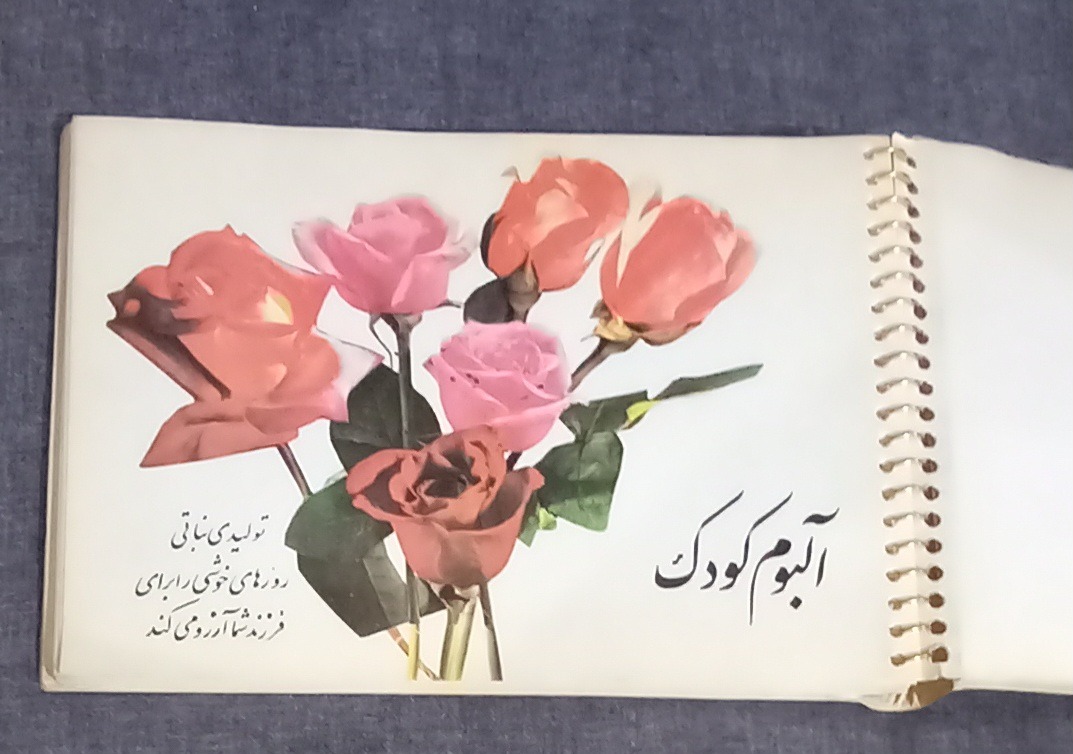 آلبوم کودک
تولیدی نباتی
روزهای خوشی را برای
فرزند شما آرزو می کند